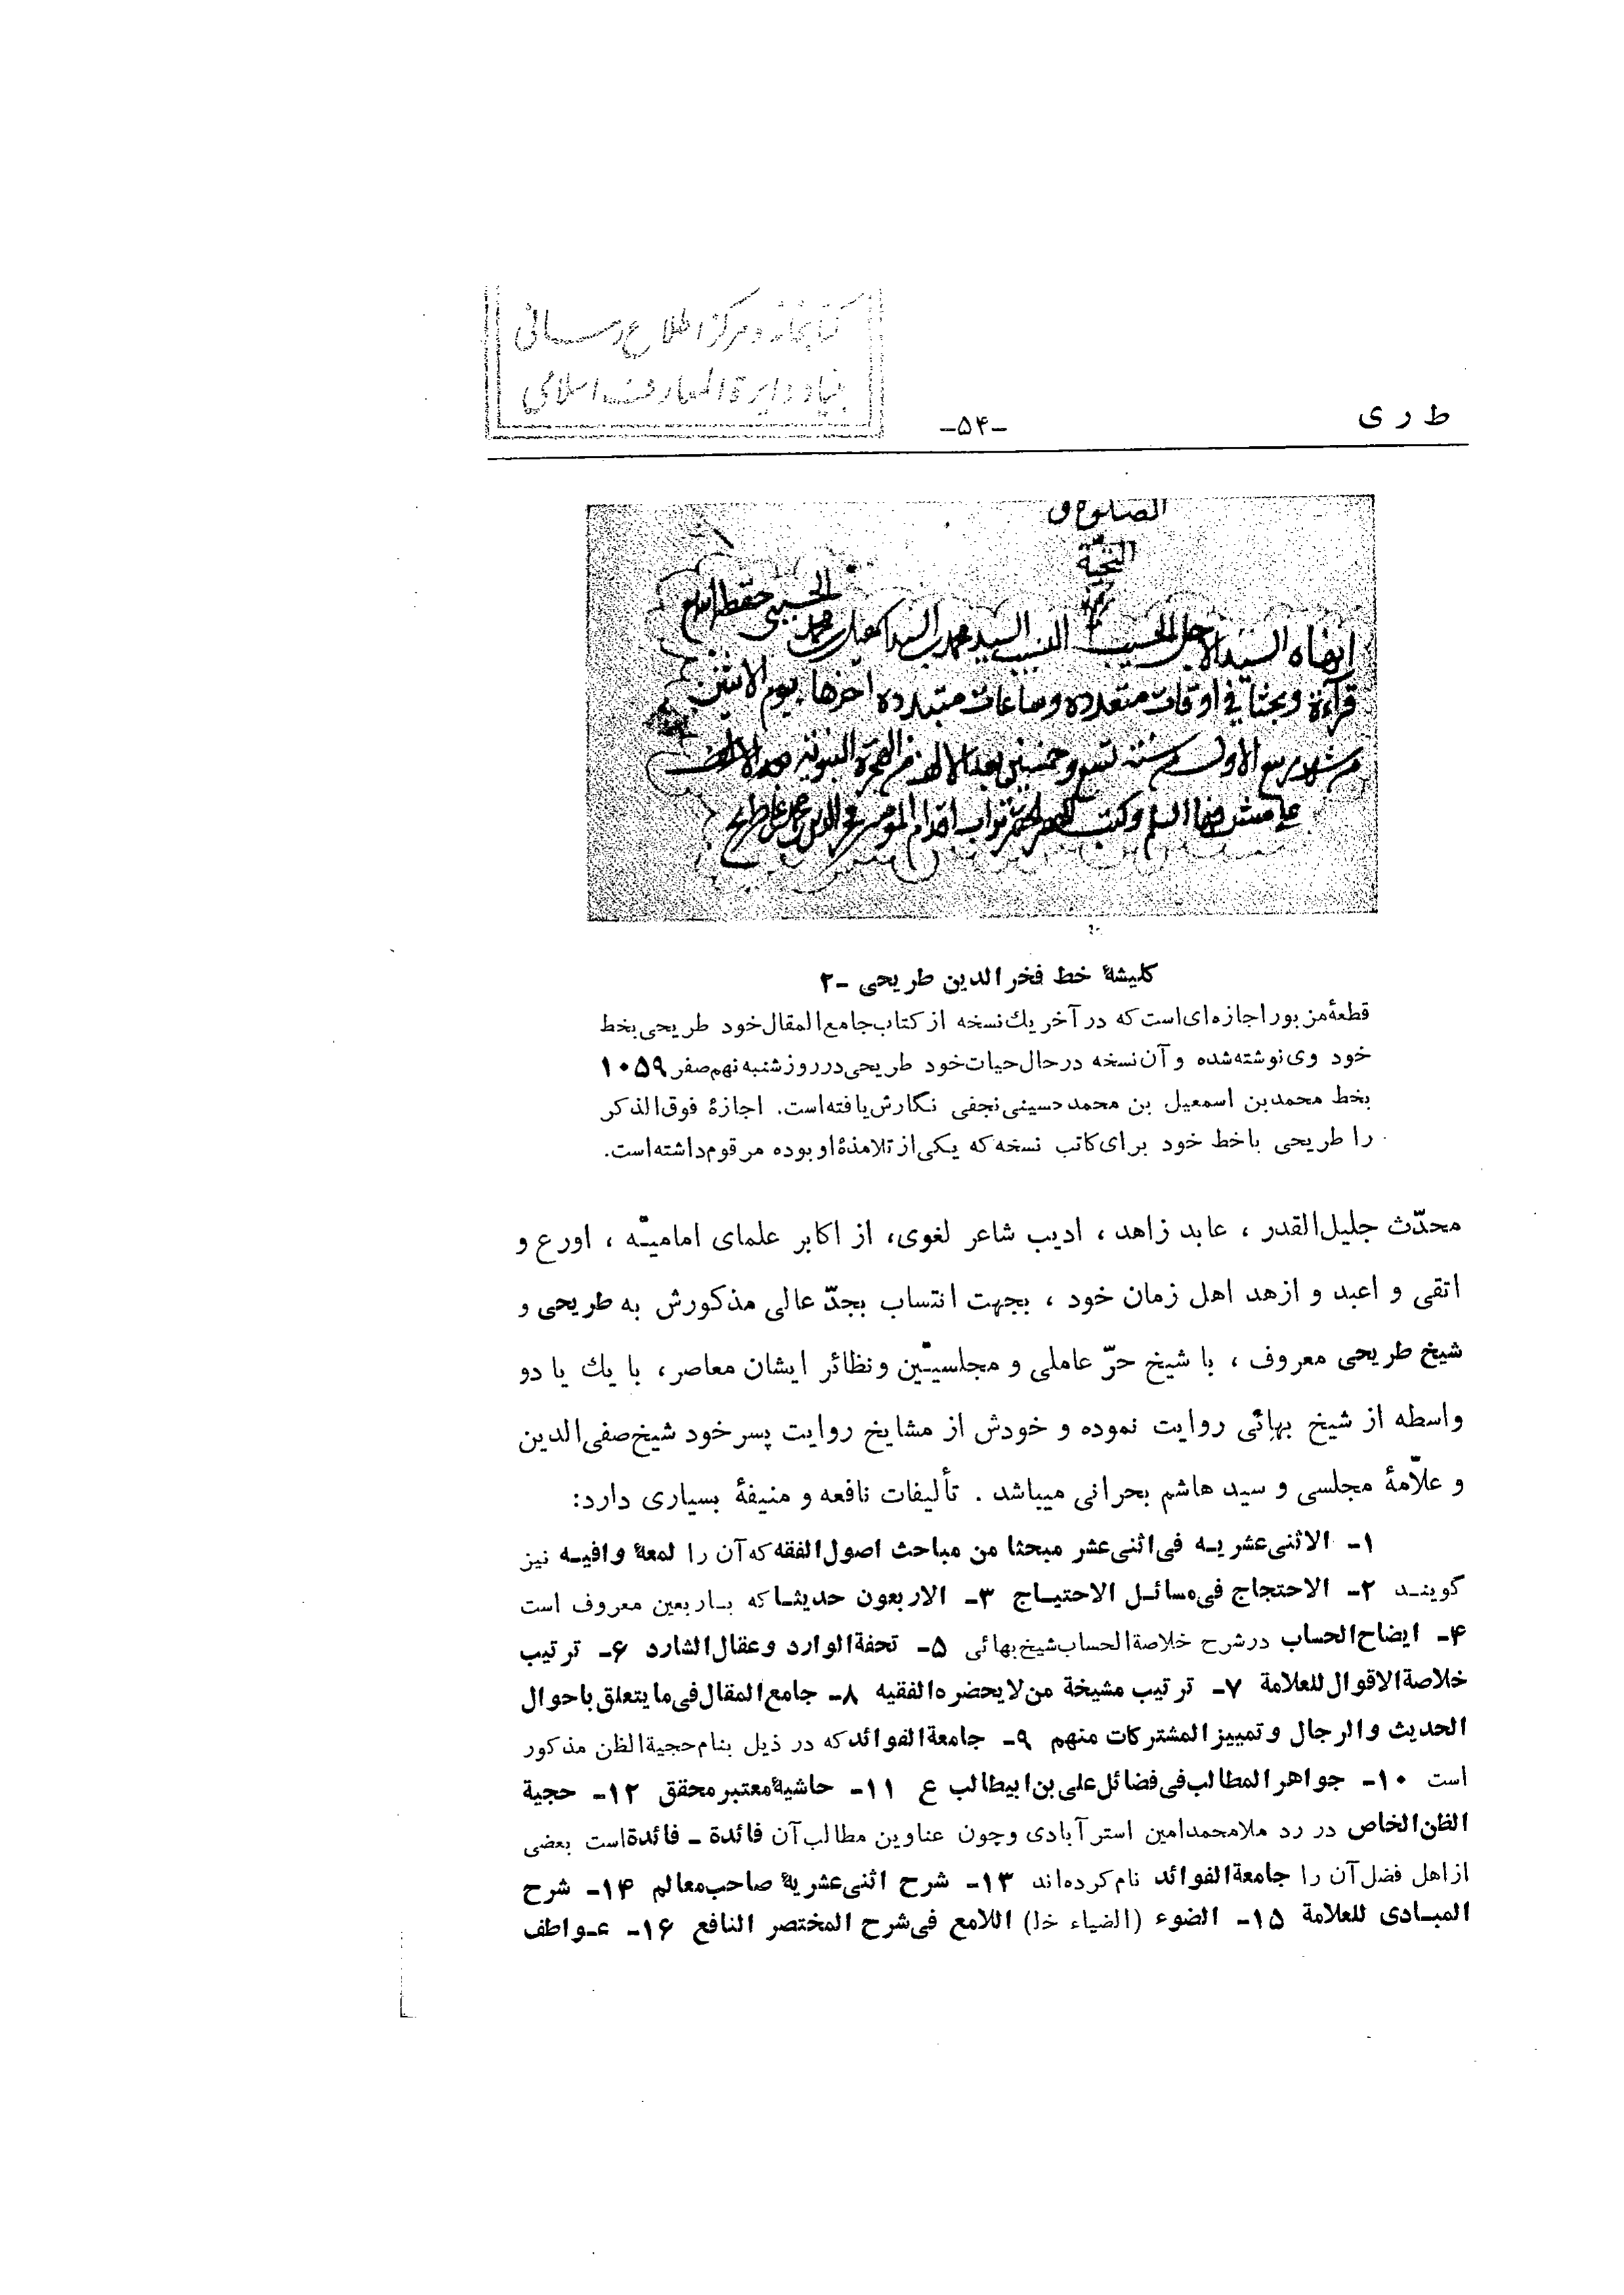 کتابخانه و مرکز اطلاع رسـانی
بنیاد دایرة المعارف اسلامی
ط ر ی
-۵۴-
الصلوة و
التحیة
انهاه السید الاجل الحسیب النسیب السید محمد بن السید اسمعیل بن محمد الحسینی حفظه الله
قراءة وبحثا فی اوقات متعدده وساعات متبدده اخرها یوم الاثنین
من شهر ربیع الاول من سنة تسع وخمسین بعد الالف من الهجرة النبویة
علی مشرفها السلام وکتب تراب اقدام المؤمنین فخر الدین بن محمد علی طریح
کلیشهٔ خط فخرالدین طریحی -۲
قطعهٔ مزبور اجازه‌ای است که در آخر یك نسخه از کتاب جامع المقال خود طریحی بخط
خود وی نوشته شده و آن نسخه در حال حیات خود طریحی در روز شنبه نهم صفر ۱۰۵۹
بخط محمد بن اسمعیل بن محمد حسینی نجفی نگارش یافته است. اجازهٔ فوق الذکر
را طریحی با خط خود برای کاتب نسخه که یکی از تلامذهٔ او بوده مرقوم داشته است.
محدّث جلیل القدر ، عابد زاهد ، ادیب شاعر لغوی، از اکابر علمای امامیّـه ، اورع و
اتقی و اعبد و ازهد اهل زمان خود ، بجهت انتساب بجدّ عالی مذکورش به طریحی و
شیخ طریحی معروف ، با شیخ حرّ عاملی و مجلسیّـین و نظائر ایشان معاصر، با یك یا دو
واسطه از شیخ بهائی روایت نموده و خودش از مشایخ روایت پسر خود شیخ صفی الدین
و علاّمهٔ مجلسی و سید هاشم بحرانی میباشد . تألیفات نافعه و منیفهٔ بسیاری دارد:
۱- الاثنی عشریـه فی اثنی عشر مبحثا من مباحث اصول الفقه که آن را لمعهٔ وافیـه نیز
گوینـد ۲- الاحتجاج فی مسائـل الاحتیـاج ۳- الاربعون حدیثـا که بـاربعین معروف است
۴- ایضاح الحساب در شرح خلاصة الحساب شیخ بهائی ۵- تحفة الوارد و عقال الشارد ۶- ترتیب
خلاصة الاقوال للعلامة ۷- ترتیب مشیخة من لا یحضره الفقیه ۸- جامع المقال فی ما یتعلق باحوال
الحدیث والرجال و تمییز المشترکات منهم ۹- جامعة الفوائد که در ذیل بنام حجیة الظن مذکور
است ۱۰- جواهر المطالب فی فضائل علی بن ابیطالب ع ۱۱- حاشیهٔ معتبر محقق ۱۲- حجیة
الظن الخاص در رد ملا محمد امین استرآبادی و چون عناوین مطالب آن فائدة - فائدة است بعضی
از اهل فضل آن را جامعة الفوائد نام کرده‌اند ۱۳- شرح اثنی عشریهٔ صاحب معالم ۱۴- شرح
المبـادی للعلامة ۱۵- الضوء (الضیاء خل) اللامع فی شرح المختصر النافع ۱۶- عـواطف